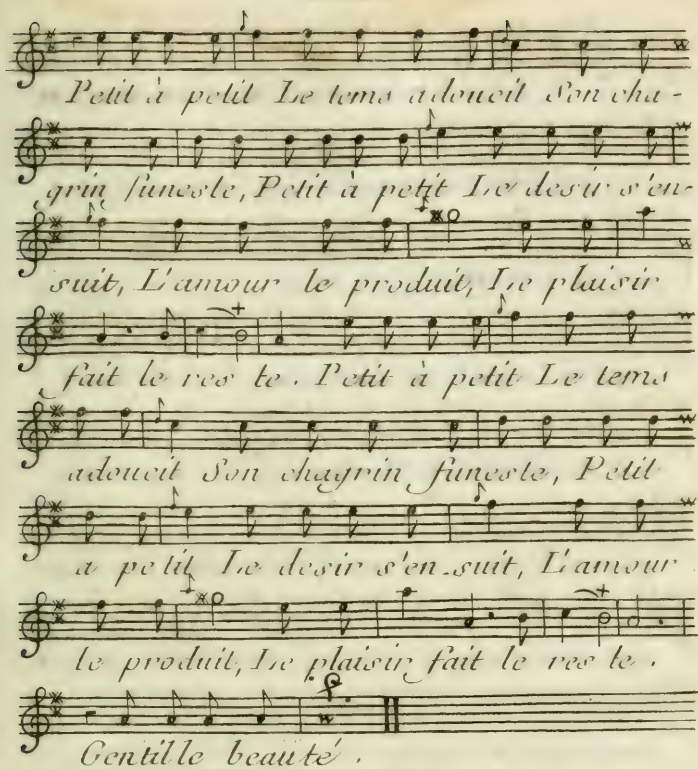 Petit à petit Le tems adoucit Son cha-
grin funeste, Petit à petit Le desir s'en-
suit, L'amour le produit, Le plaisir
fait le res te. Petit à petit Le tems
adoucit Son chagrin funeste, Petit
a petit Le desir s'en-suit, L'amour
le produit, Le plaisir fait le res te.
Gentille beauté.